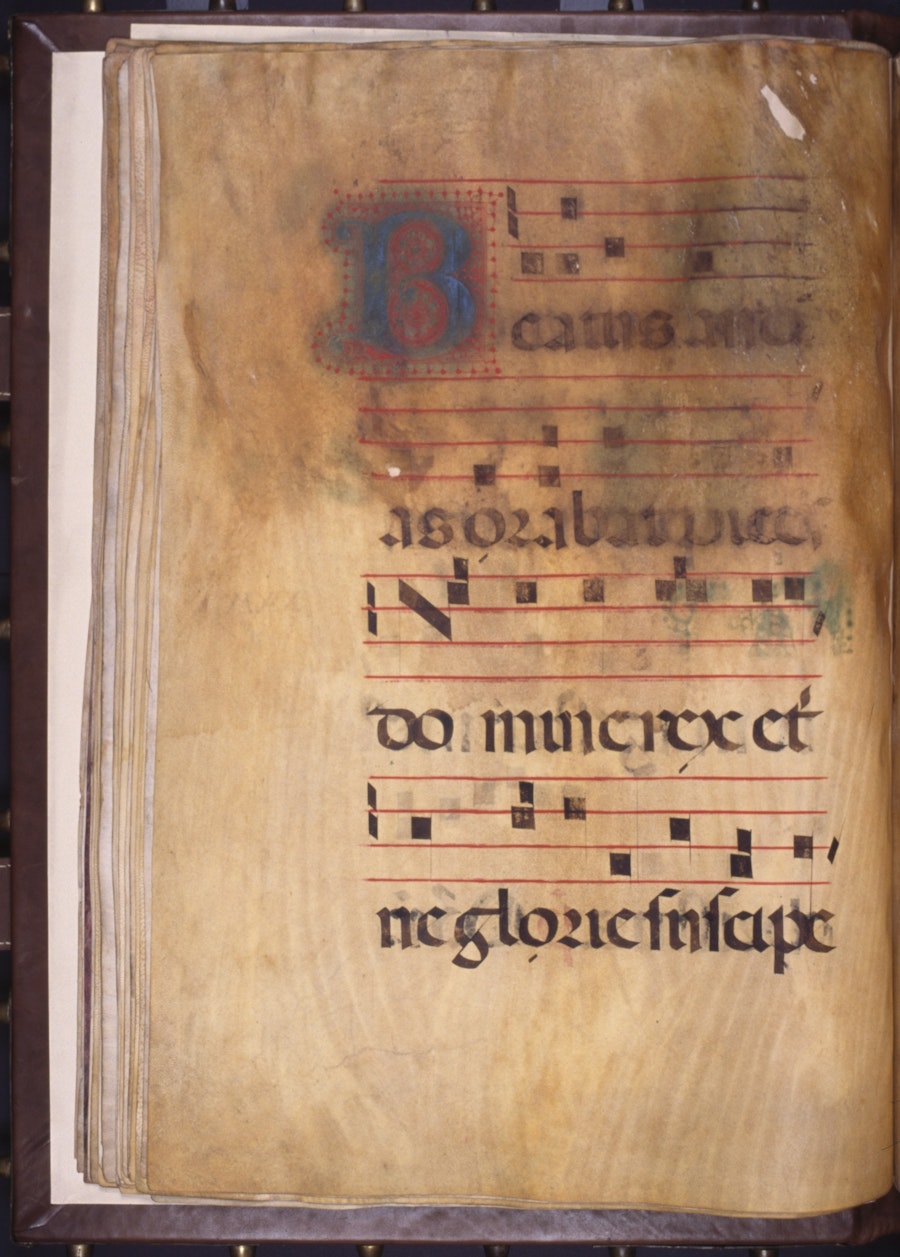 Beatus andre
as orabat dicē
do mine rex et̄
ne glorie suscipe